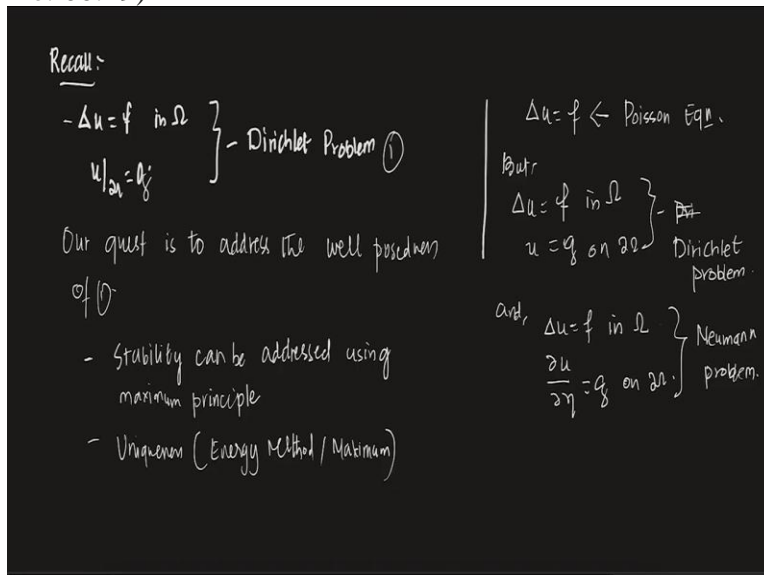 Recall:-
-Δu = f in Ω
u/∂Ω = g
} - Dirichlet Problem ①
Our quest is to address the well posedness
of ①.
- Stability can be addressed using
maximum principle
- Uniqueness (Energy Method / Maximum)
Δu = f ← Poisson Eqn.
But,
Δu = f in Ω
u = g on ∂Ω
} - Dirichlet
problem.
and,
Δu = f in Ω
∂u/∂η = g on ∂Ω.
} Neumann
problem.